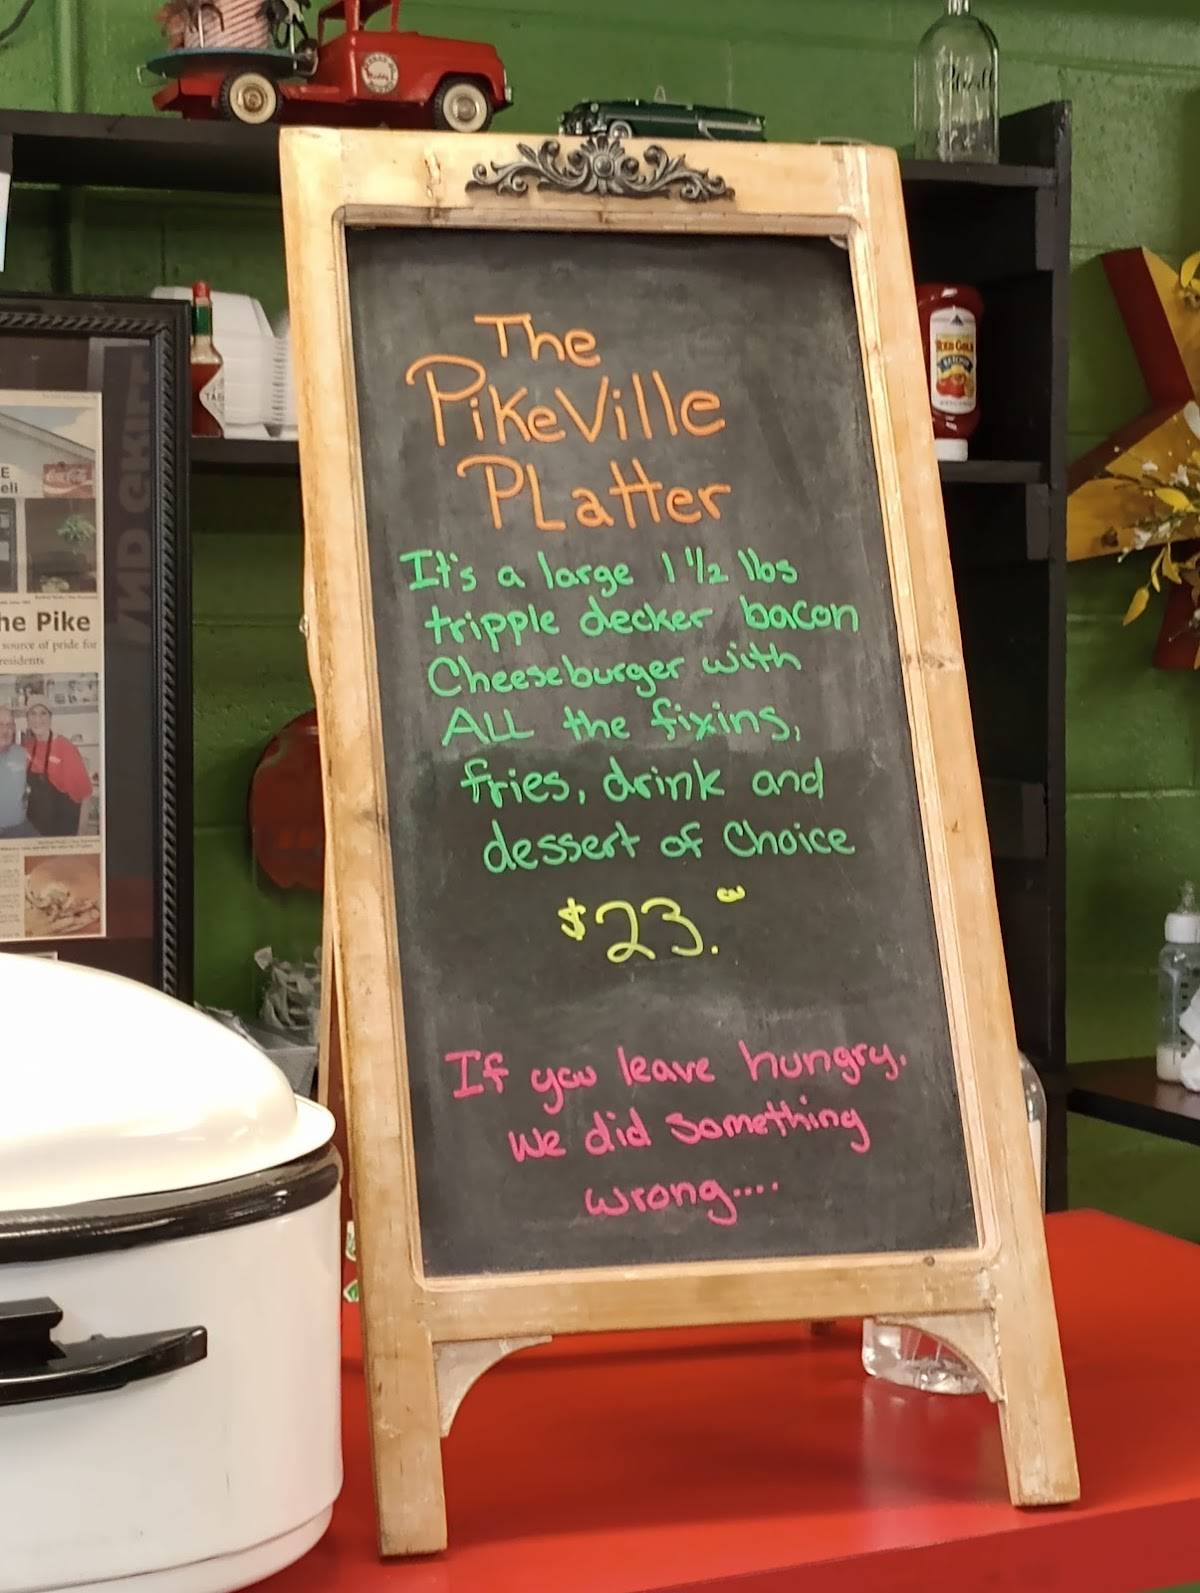 The
PikeVille
PLatter
It's a large 1 1/2 lbs
tripple decker bacon
Cheeseburger with
ALL the fixins,
fries, drink and
dessert of Choice
$23.00
If you leave hungry.
We did something
wrong....
he Pike
source of pride for
residents
E
eli
Coca-Cola
TAB
RED GOLD